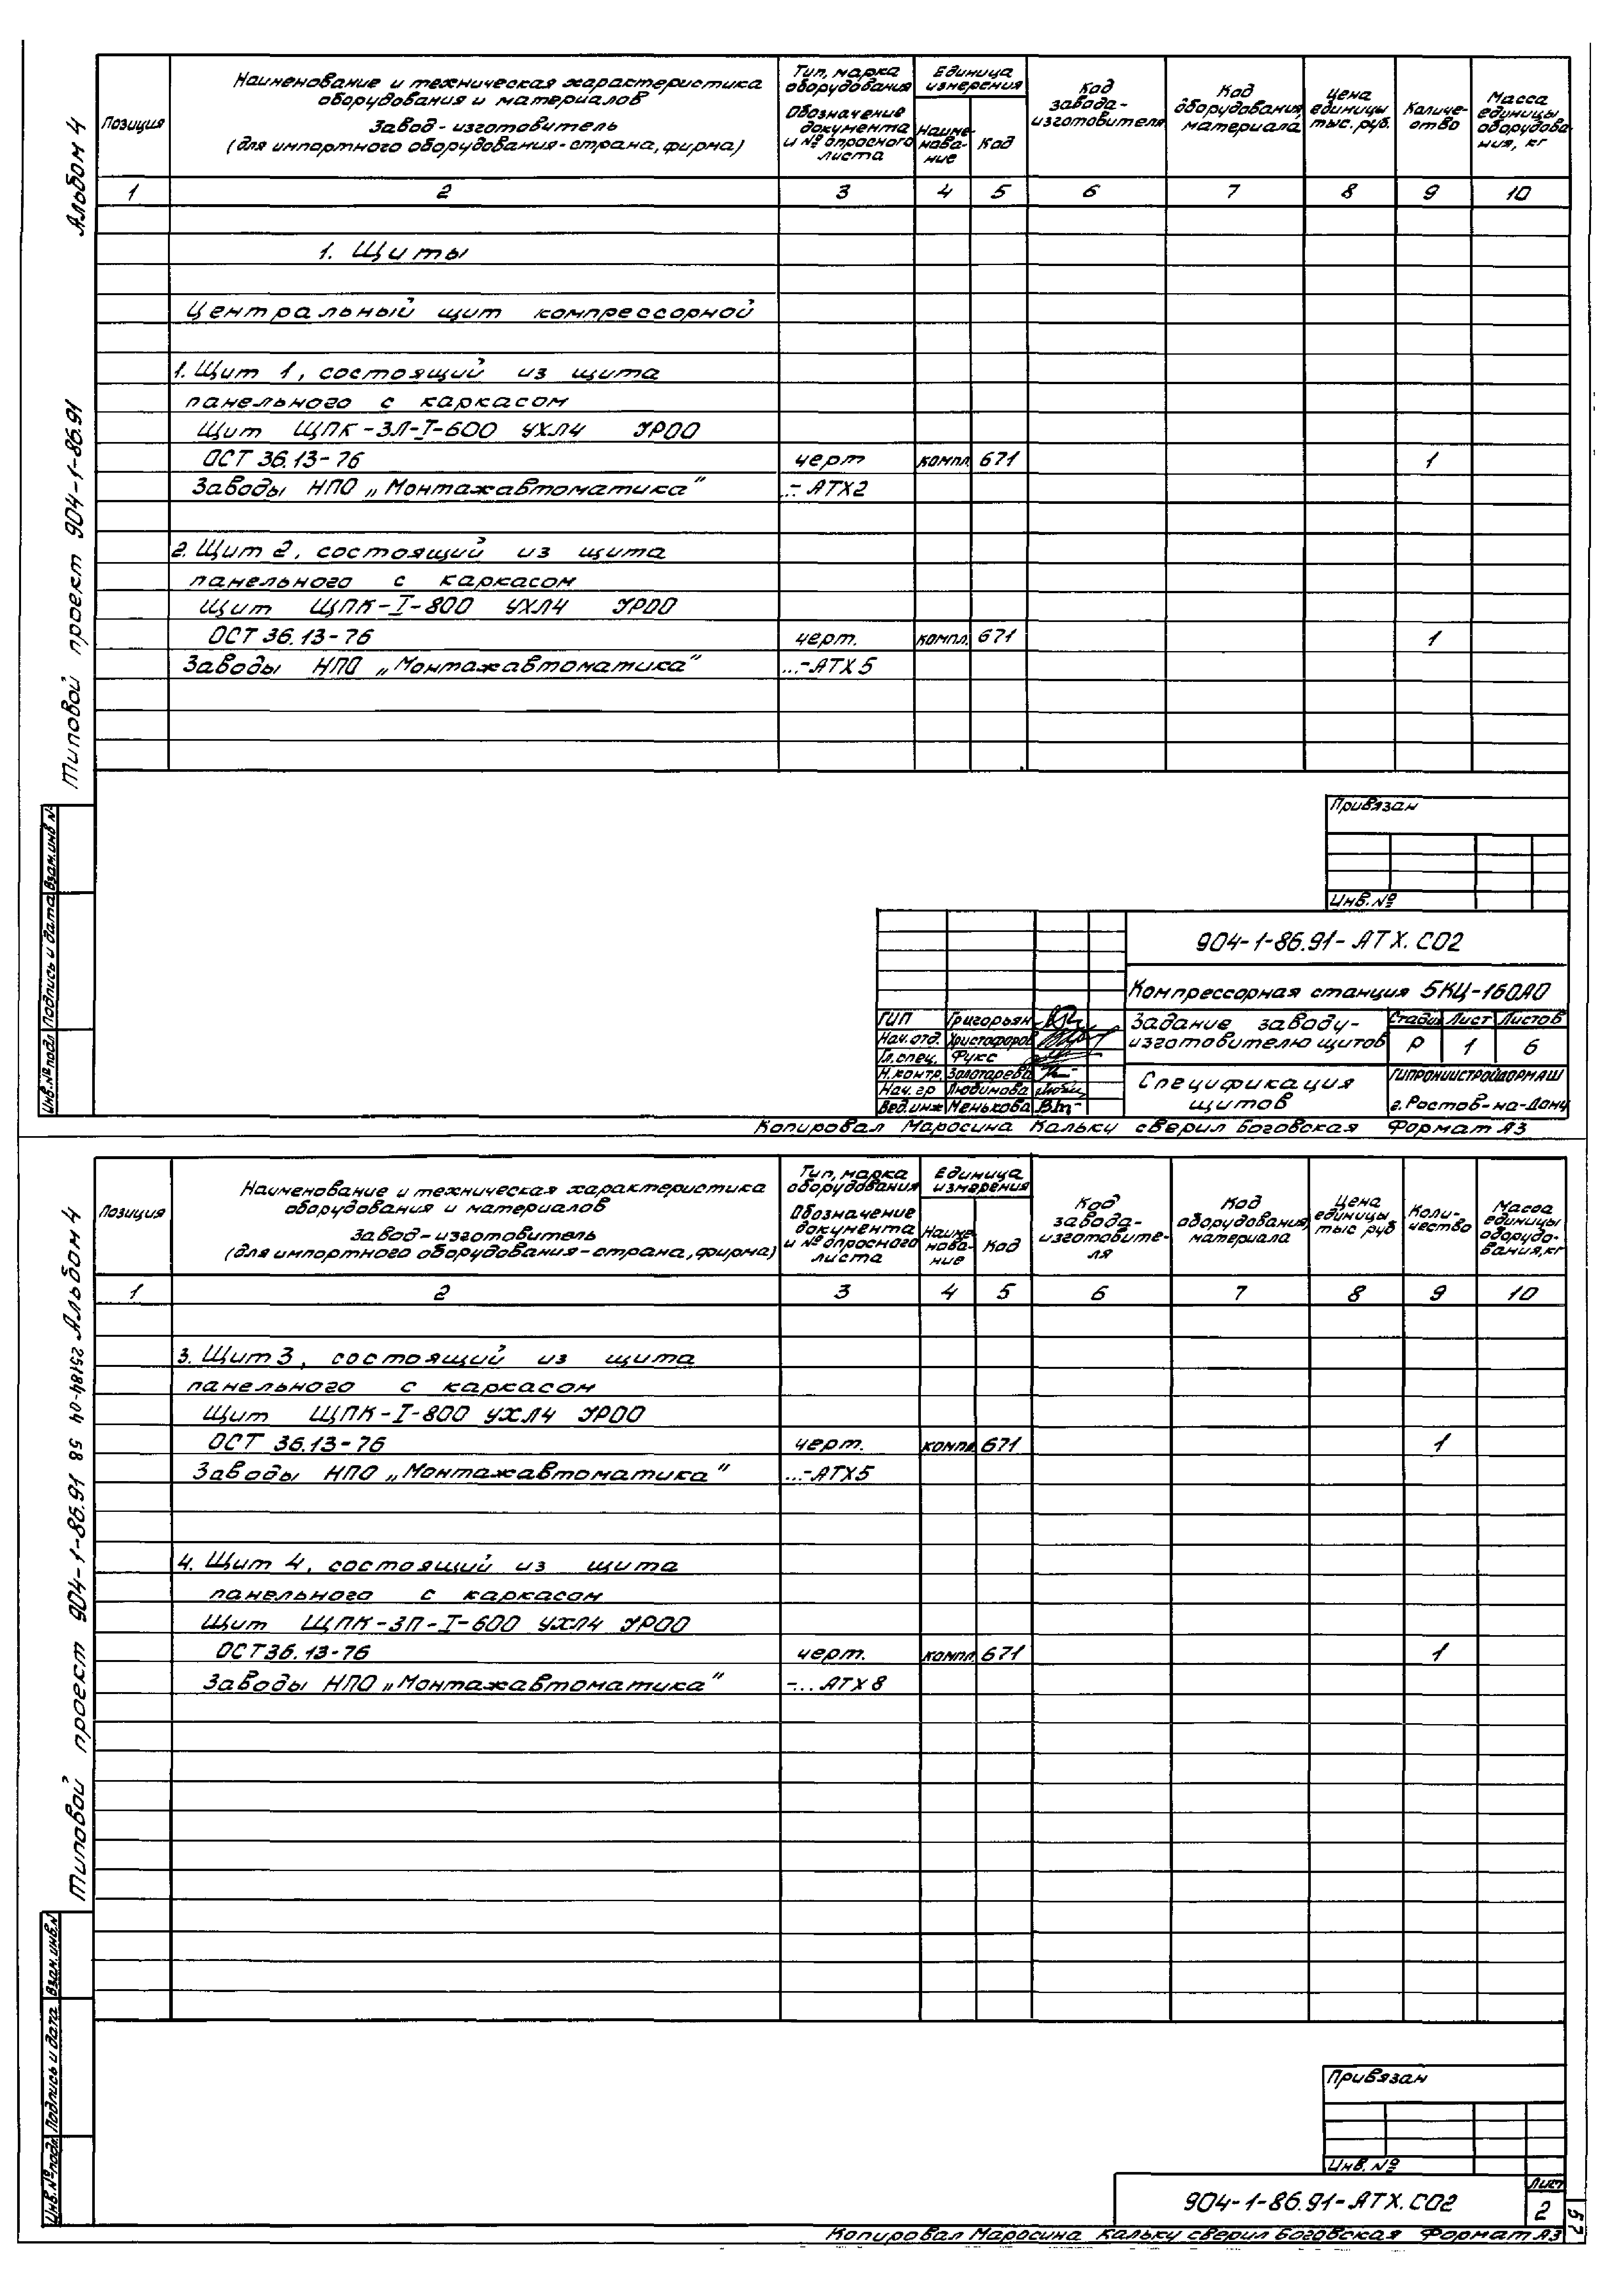 Альбом 4
Типовой проект 904-1-86.91
Позиция
Наименование и техническая характеристика
оборудования и материалов
Завод-изготовитель
(для импортного оборудования-страна, фирма)
Тип, марка
оборудования
Обозначение
документа
и № опросного
листа
Единица
измерения
Наиме-
нова-
ние
Код
Код
завода-
изготовителя
Код
оборудования,
материала
Цена
единицы
тыс. руб.
Количе-
ство
Масса
единицы
оборудова-
ния, кг
1 2 3 4 5 6 7 8 9 10
1. Щиты
Центральный щит компрессорной
1. Щит 1, состоящий из щита
панельного с каркасом
Щит ЩПК-ЗЛ-I-600 УХЛ4 УР00
ОСТ 36.13-76 черт компл. 671 1
Заводы НПО „Монтажавтоматика" ...- АТХ2
2. Щит 2, состоящий из щита
панельного с каркасом
Щит ЩПК-I-800 УХЛ4 УР00
ОСТ 36.13-76 черт. компл. 671 1
Заводы НПО „Монтажавтоматика" ...-АТХ5
Взам.инв №
Подпись и дата
Инв.№ подл
Привязан
Инв. №
904-1-86.91-АТХ.СО2
Компрессорная станция 5КЦ-160А0
ГИП Григорьян
Нач.отд. Христофоров
Гл.спец. Фукс
Н.контр. Золотарева
Нач.гр Любимова
Вед.инж Менькова
Задание заводу-
изготовителю щитов
Стадия Лист Листов
Р 1 6
Спецификация
щитов
ГИПРОНИИСТРОЙДОРМАШ
г. Ростов-на-Дону
Копировал Маросина Кальку сверил Боговская Формат А3
Типовой проект 904-1-86.91 58 25184-04 Альбом 4
Позиция
Наименование и техническая характеристика
оборудования и материалов
Завод-изготовитель
(для импортного оборудования-страна, фирма)
Тип, марка
оборудования
Обозначение
документа
и № опросного
листа
Единица
измерения
Наиме-
нова-
ние
Код
Код
завода-
изготовите-
ля
Код
оборудования,
материала
Цена
единицы
тыс руб
Коли-
чество
Масса
единицы
оборудо-
вания, кг
1 2 3 4 5 6 7 8 9 10
3. Щит 3, состоящий из щита
панельного с каркасом
Щит ЩПК-I-800 УХЛ4 УР00
ОСТ 36.13-76 черт. компл. 671 1
Заводы НПО „Монтажавтоматика" ...-АТХ5
4. Щит 4, состоящий из щита
панельного с каркасом
Щит ЩПК-ЗП-I-600 УХЛ4 УР00
ОСТ 36.13-76 черт. компл. 671 1
Заводы НПО „Монтажавтоматика" -... АТХ8
Взам. инв.№
Подпись и дата
Инв.№ подл.
Привязан
Инв. №
904-1-86.91-АТХ.СО2
Лист
2
57
Копировал Маросина Кальку сверил Боговская Формат А3